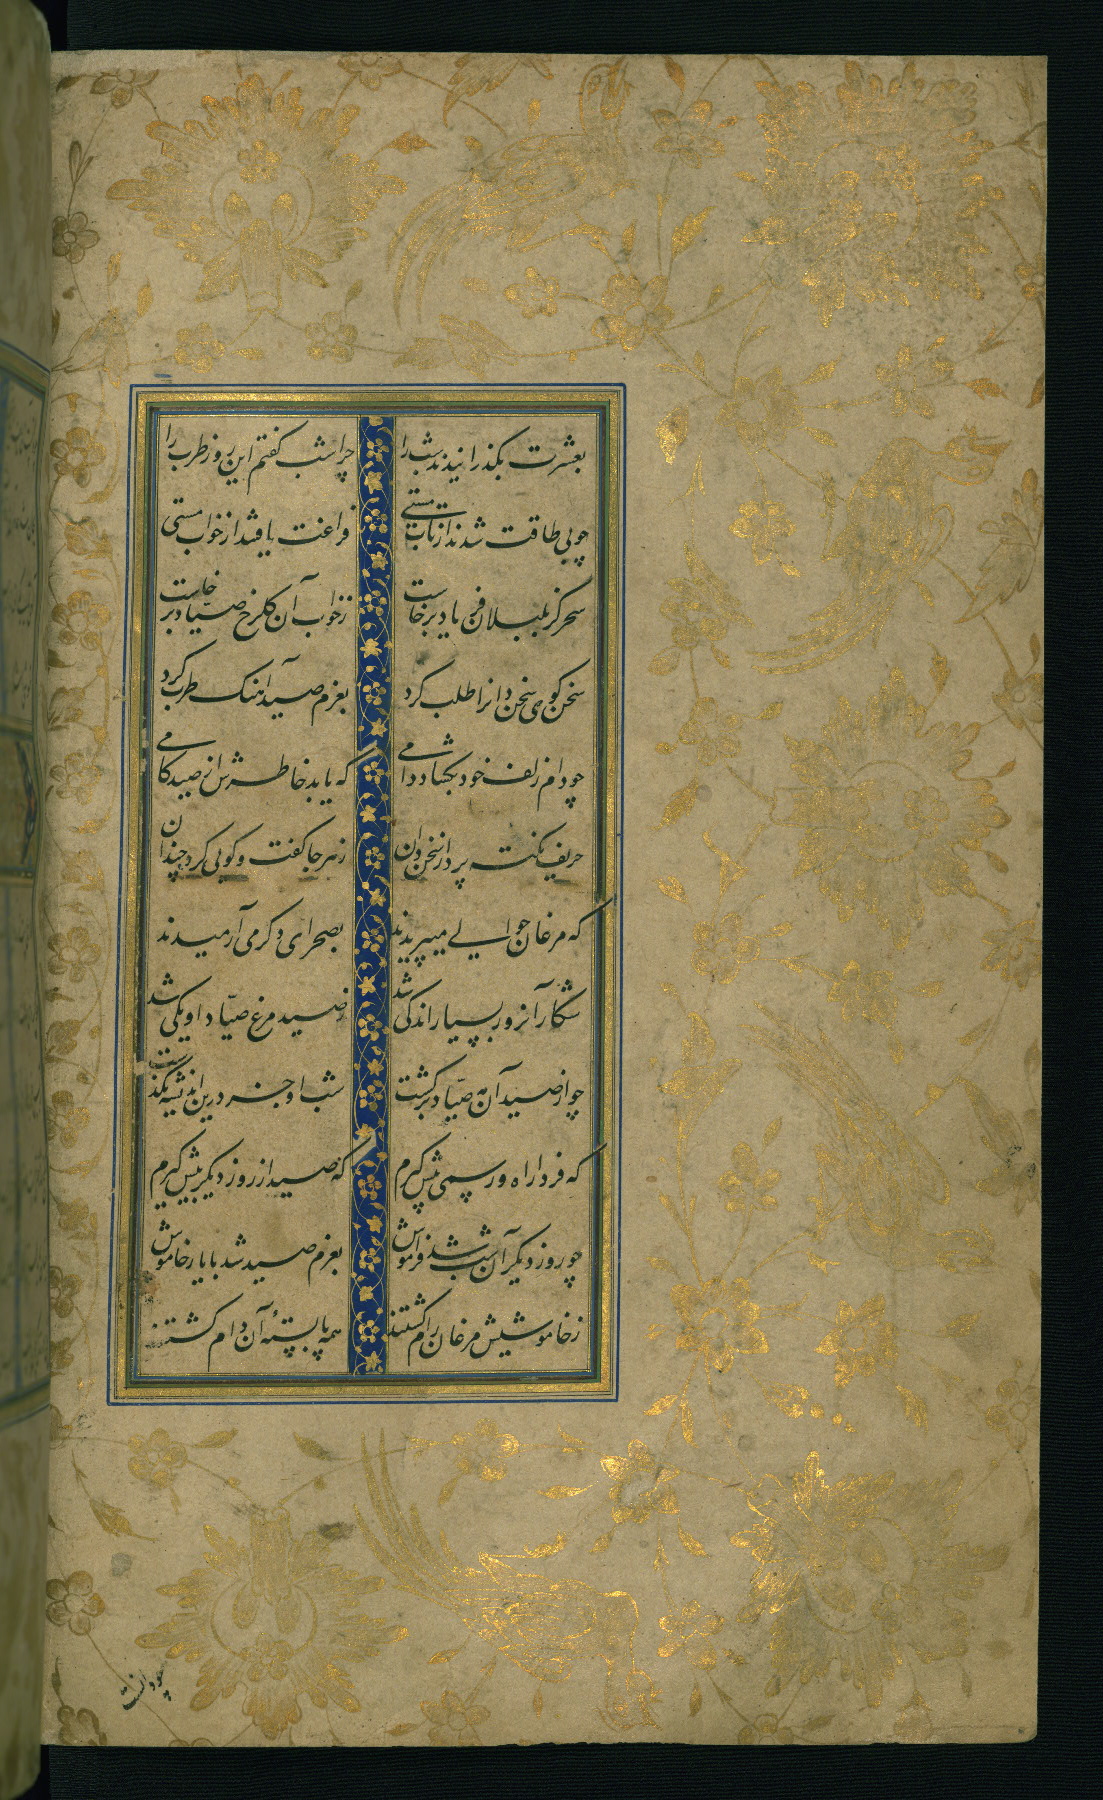 بعشرت بگذرانیدند شب را چرا شب گفتم این روز طرب را
چو بی طاقت شدند از تاب مستی فراغت یافتند از خواب مستی
سحر کز بلبلان فریاد برخاست ز خواب آن گلرخ صیاد برخاست
سخن گوی سخن دانرا طلب کرد بعزم صید آهنک طرب کرد
چو دام زلف خود بگشاد دامی که یابد خاطرش از صید کامی
حریف نکته پرداز سخن دان ز هر جا گفت و گویی کرد چندان
که مرغان حوالی میپریدند بصحرای دگر می آرمیدند
شکار آنروز بسیار اندکی شد ضید مرغ صیاد او یکی شد
چو از صید آن مه صیاد برگشت شب او جز درین اندیشه نگذشت
که فردا راه و رسمی پیش گیرم که صید از روز دیگر بیش گیرم
چو روز دیگر آن شب شد فراموش بعزم صید شد با یار خاموش
ز خاموشیش مرغان رام گشتند همه پا بستهٔ آن دام گشتند
چو دانست